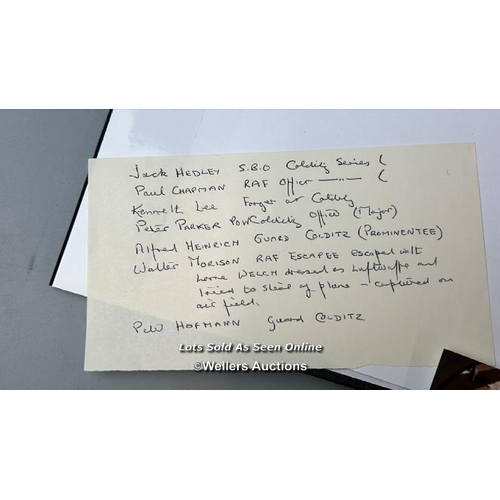 Jack HEDLEY S.B.O Colditz Series (
Paul CHAPMAN RAF Officer —..— (
Kenneth Lee Forger at Colditz
Peter PARKER POW Colditz Officer (Major)
Alfred HEINRICH GUARD COLDITZ (PROMINENTEE)
Walter MORISON RAF ESCAPEE escaped with
Lorne WELCH dressed as Luftwaffe and
tried to steal plane – captured on
air field.
HOFMANN Guard COLDITZ
Lots Sold As Seen Online
©Wellers Auctions